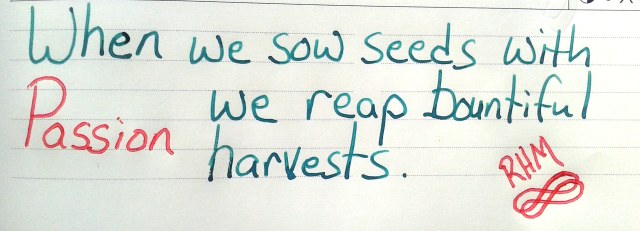 When we sow seeds with
Passion we reap bountiful
harvests.
RHM